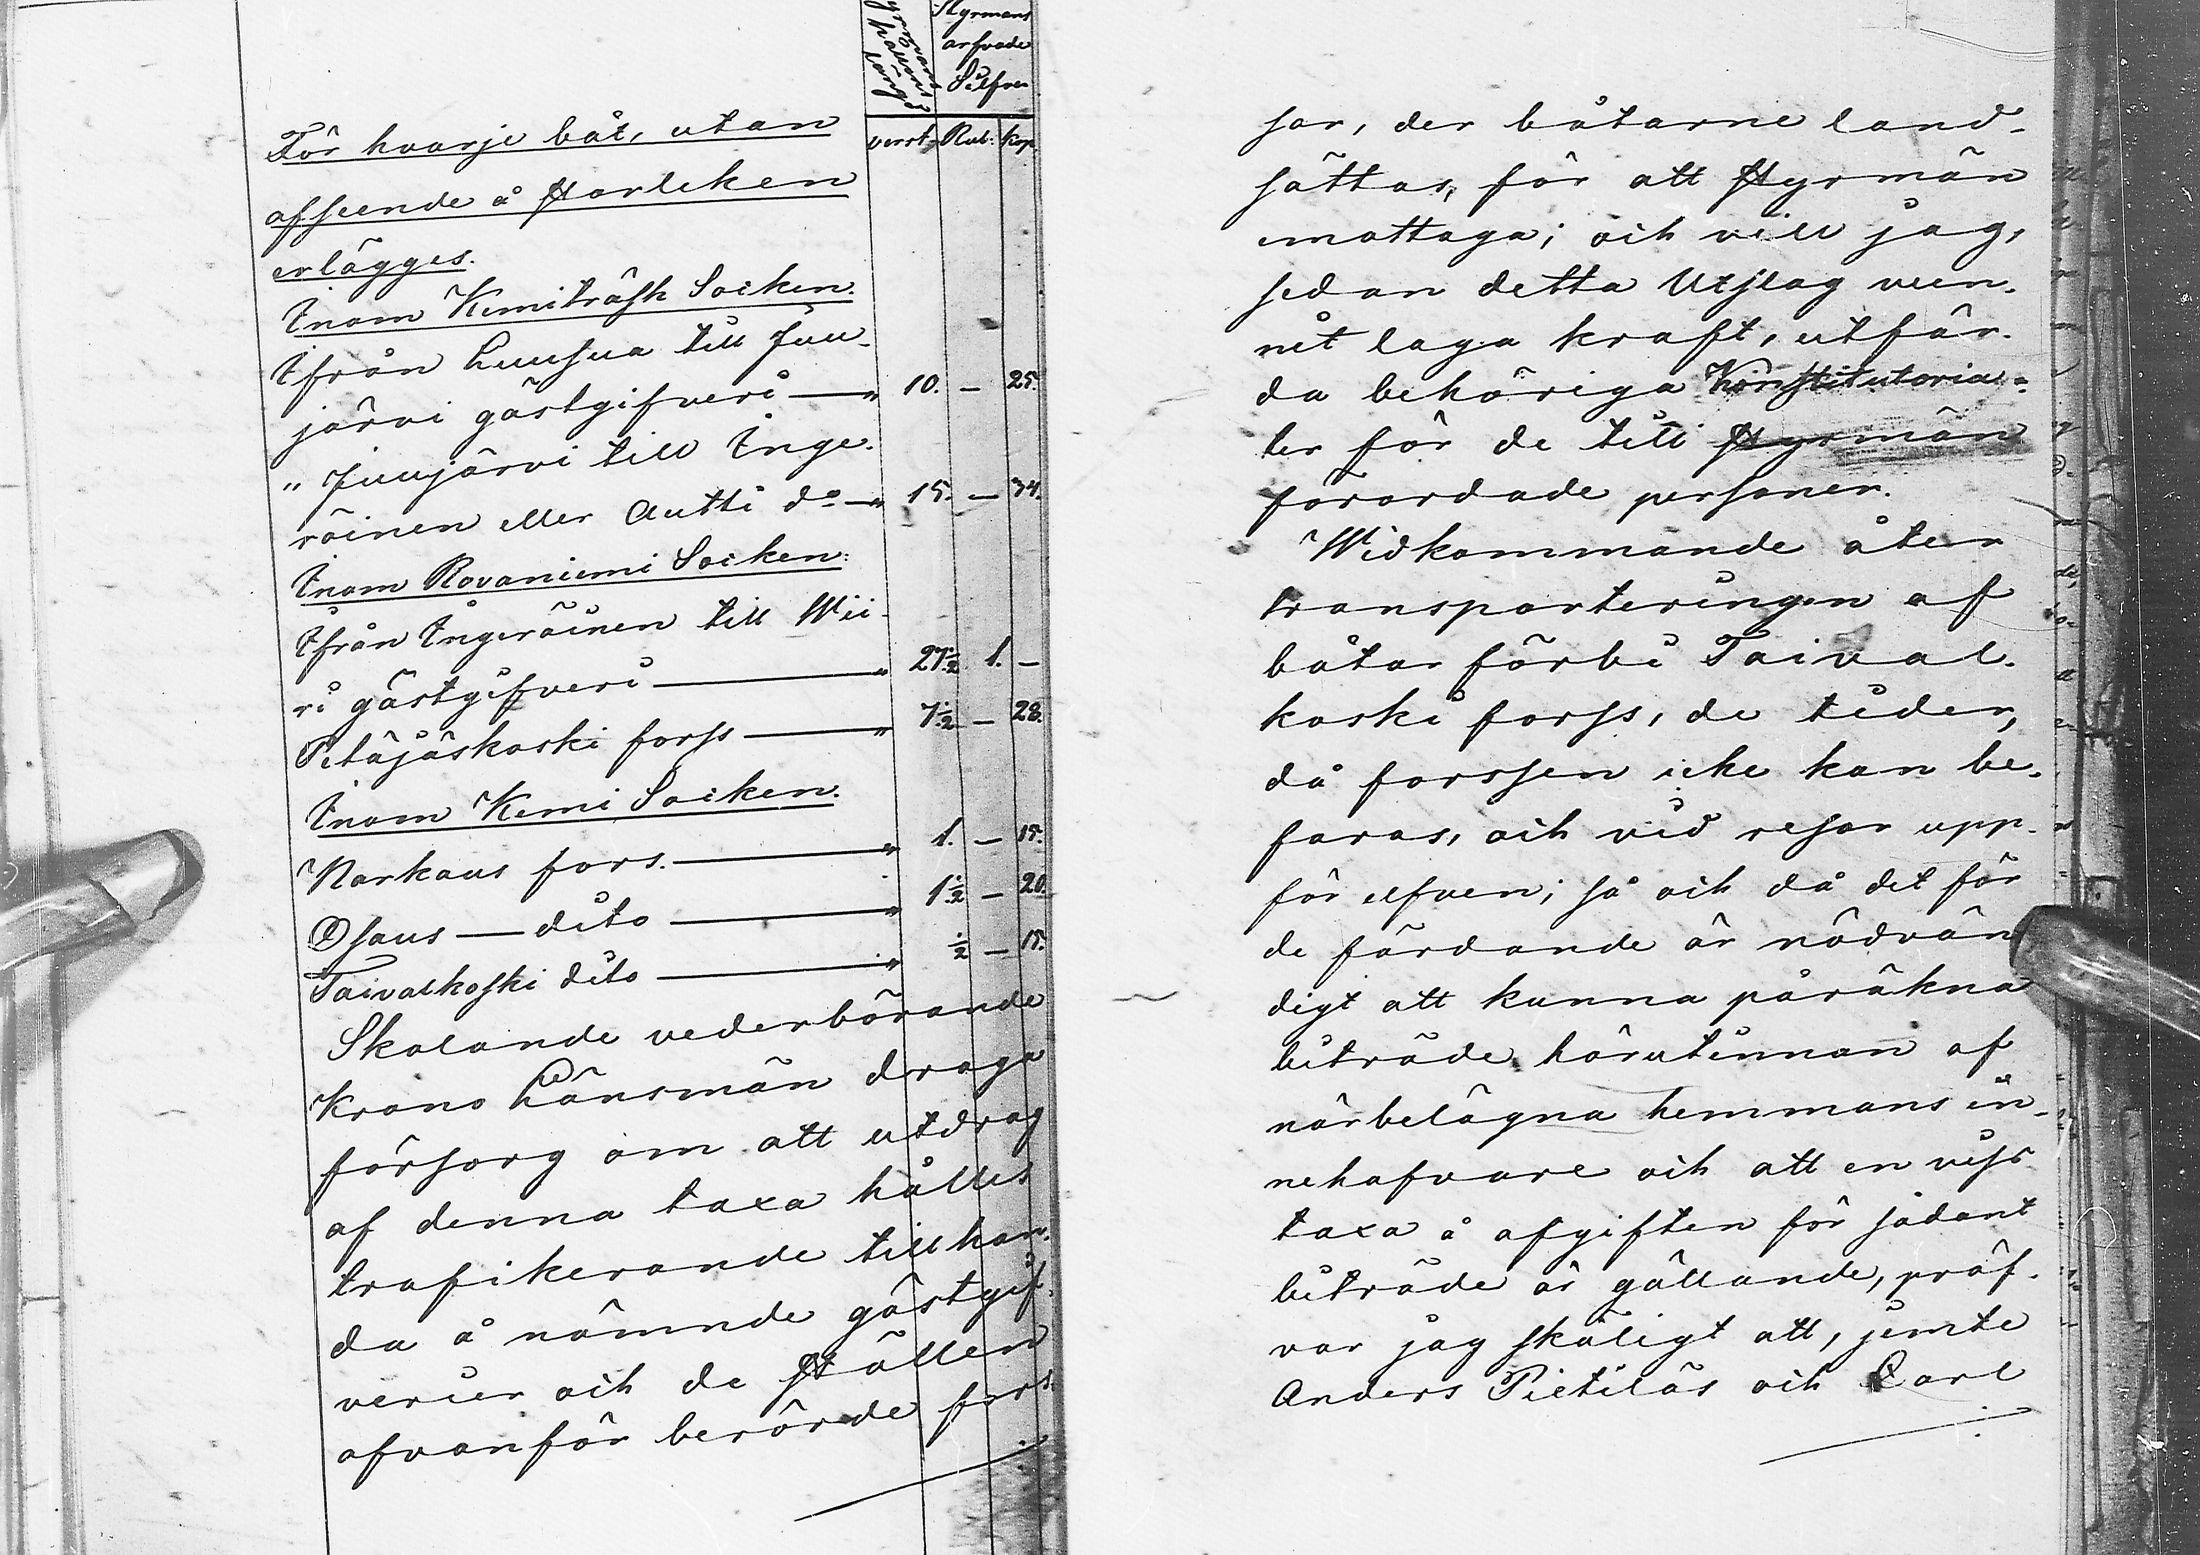 Styrmans
arfvode
Silfver
verst. Rub: kop.
För hvarje båt, utan
afseende å storleken
erlägges.
Inom Kemiträsk Socken.
Ifrån Luusua till Juu-
järvi gästgifveri — " 10. — 25.
" Juujärvi till Inge-
räinen eller Autti do — " 15. — 34.
Inom Rovaniemi Socken.
Ifrån Ingeräinen till Wii-
ri gästgifveri — " 27 1/2 1. —
Petäjäskoski forss — " 7 1/2 — 28.
Inom Kemi Socken.
Narkaus fors. — " 1. — 15.
Osaus — dito — " 1 1/2 — 20.
Taivalkoski dito — " 1/2 — 15.
Skolande vederbörande
Krono Länsmän draga
försorg om att utdrag
af denna taxa hålles
trafikerande tillhan-
da å nämnde gästgif-
verier och de ställen
ofvanför berörde fors-
sar, der båtarne land-
sättas, för att styrmän
emottaga; och vill jag,
sedan detta Utslag vun-
nit laga kraft, utfär-
da behöriga Konstitutoria-
ler för de till styrmän
förordade personer.
Widkommande åter
transporteringen af
båtar förbi Taival-
koski forss, de tider,
då forssen icke kan be-
faras, och vid resor upp-
för elfven; så och då det för
de färdande är nödvän-
digt att kunna påräkna
biträde härutinnan af
närbelägna hemmans in-
nehafvare och att en viss
taxa å afgiften för sådant
biträde är gällande, pröf-
var jag skäligt att, jemte
Anders Pietiläs och Carl